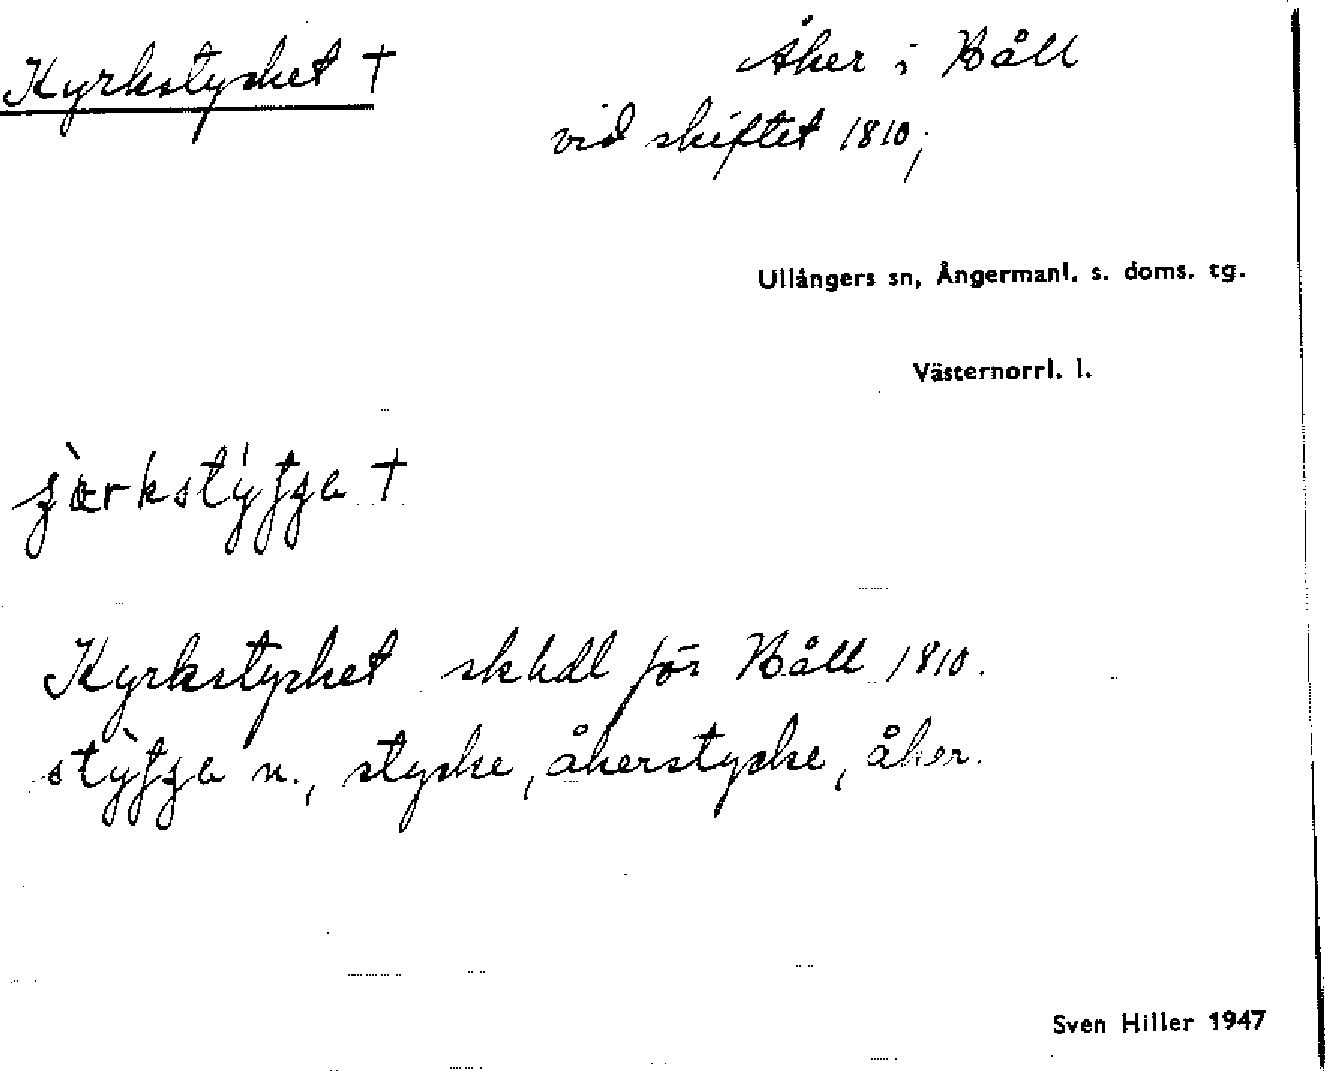 Kyrkstycket † Åker i Båll
vid skiftet 1810;
Ullångers sn, Ångermanl. s. doms. tg.
Västernorrl. l.
Kyrkstycket skhdl för Båll 1810.
n., stycke, åkerstycke, åker.
Sven Hiller 1947